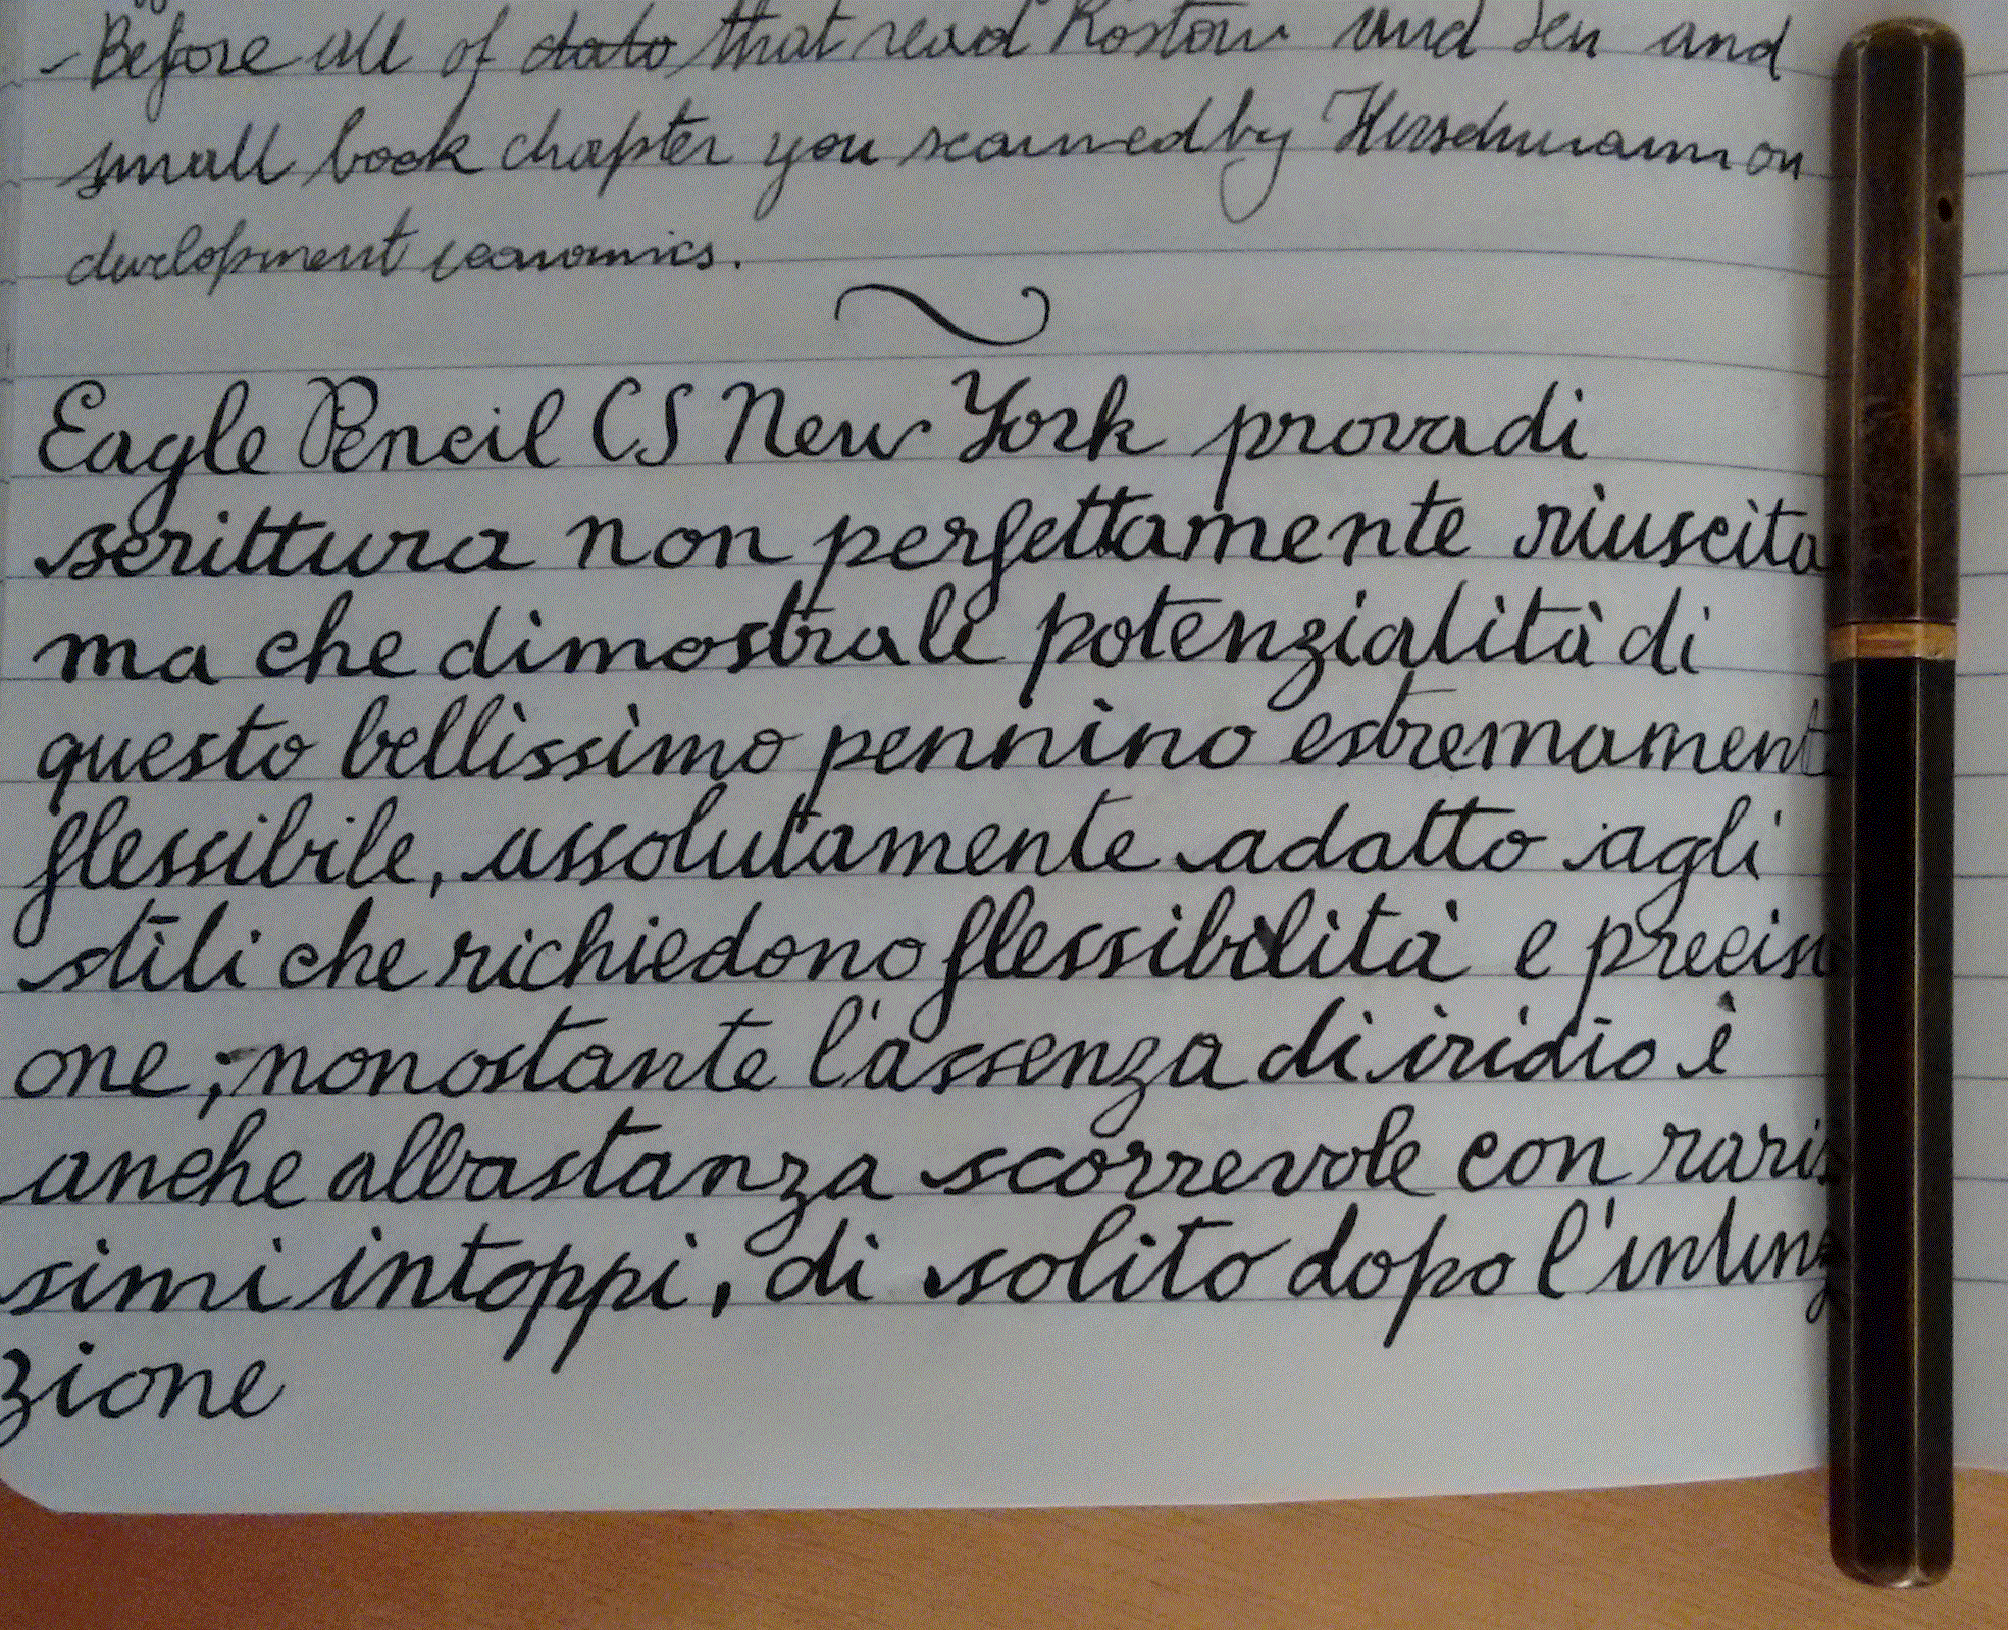 - Before all of dato that read Rostow and Sen and
small book chapter you scanned by Hirschmann on
development economics.
Eagle Pencil CS New York prova di
scrittura non perfettamente riuscita
ma che dimostra le potenzialità di
questo bellissimo pennino estremament
flessibile, assolutamente adatto agli
stili che richiedono flessibilità e precisi
one, nonostante l'assenza di iridio è
anche abbastanza scorrevole con raris
simi intoppi, di solito dopo l'intinz
zione